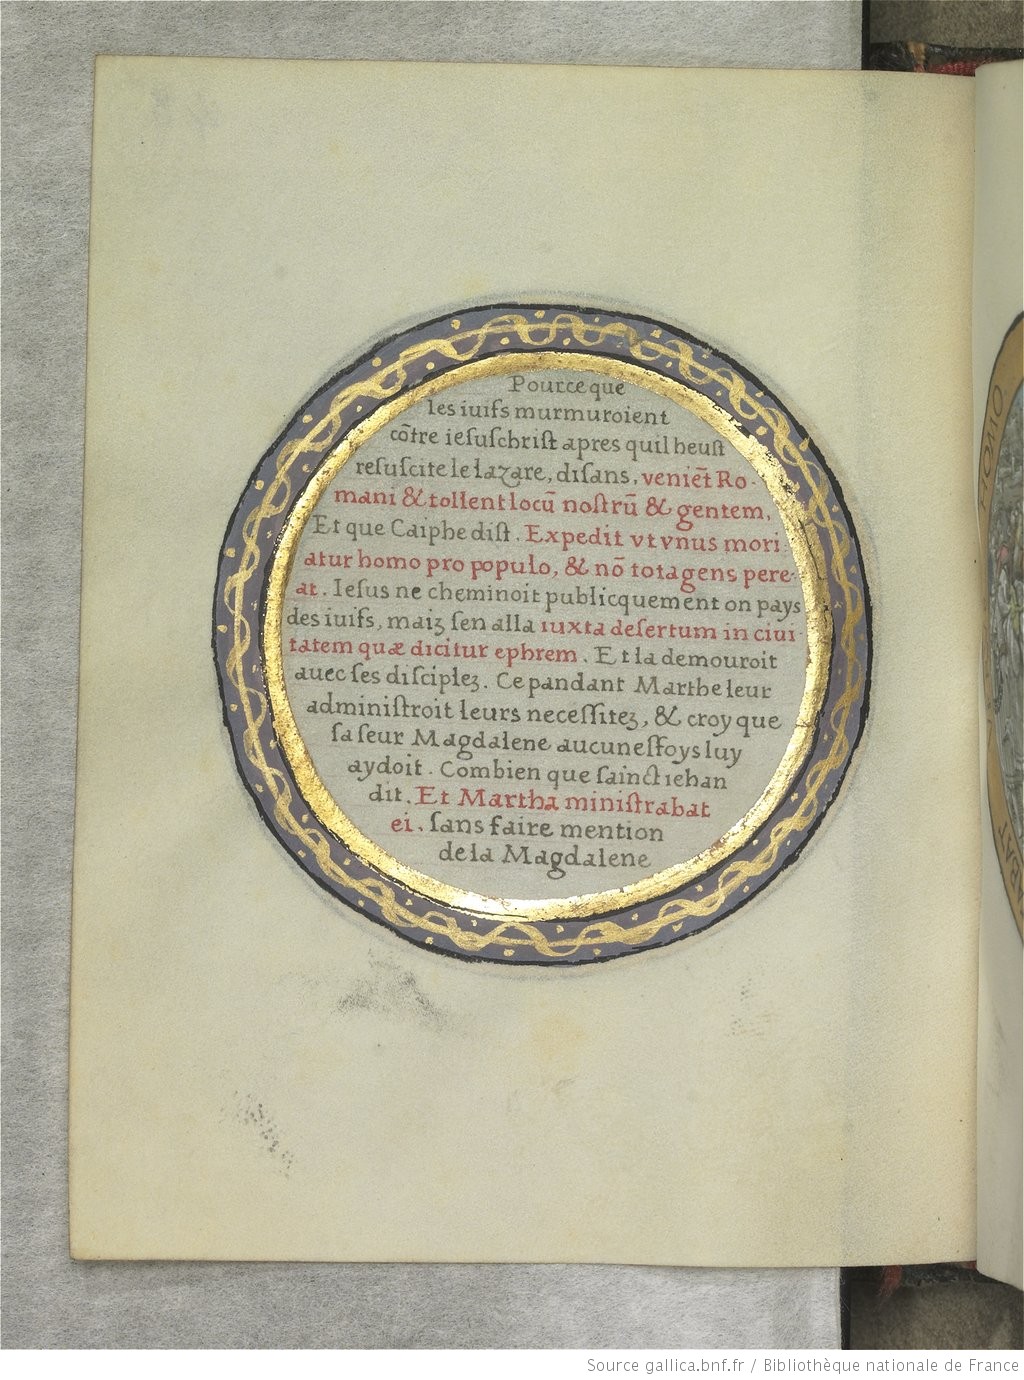 Pource que
les iuifs murmuroient
cõtre iesuſchriſt apres quil heuſt
reſuſcite le lazare, diſans, veniẽt Ro-
mani & tollent locũ noſtrũ & gentem,
Et que Caiphe diſt. Expedit vt vnus mori
atur homo pro populo, & nõ tota gens pere-
at. Ieſus ne cheminoit publicquement on pays
des iuifs, maiz ſen alla iuxta deſertum in ciui-
tatem quæ dicitur ephrem. Et la demouroit
auec ſes diſciplez. Ce pandant Marthe leur
adminiſtroit leurs neceſſitez, & croy que
ſa ſeur Magdalene aucuneſfoys luy
aydoit. Combien que ſainct iehan
dit. Et Martha miniſtrabat
ei. ſans faire mention
de la Magdalene
HOMO
ABAT
Source gallica.bnf.fr / Bibliothèque nationale de France